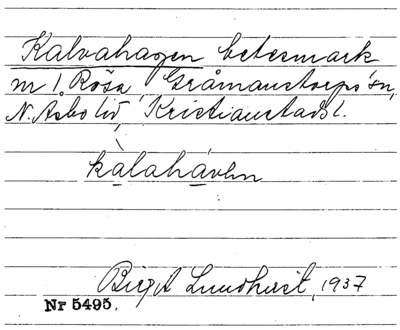 Kalvahagen betesmark
nr 1. Röða Gråmanstorps sn,
N. Åsbo hd, Kristianstads l.
kàlahávhn
Birgit Lundquist, 1937
Nr 5495.